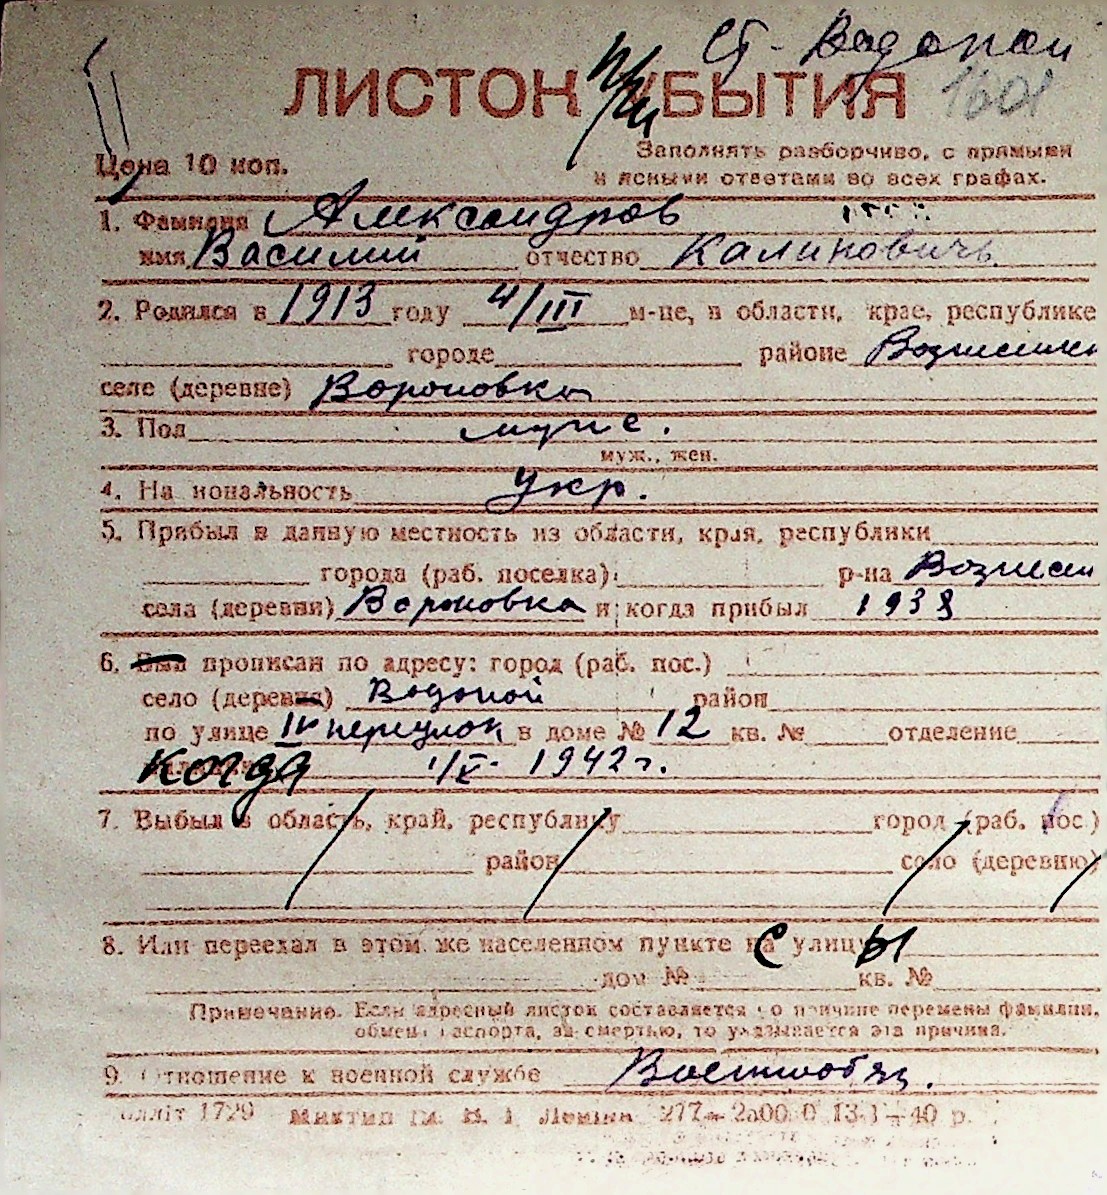 Ст. Водопой
ЛИСТОК УБЫТИЯ 1601
Цена 10 коп.
Заполнять разборчиво, с прямыми
и ясными ответами во всех графах.
1. Фамилия Александров
имя Василий отчество Калинович
2. Родился в 1913 году 4/III м-це, в области, крае, республике
городе районе Вознесенк
селе (деревне) Вороновка
3. Пол муже.
муж., жен.
4. На иональность Укр.
5. Прибыл в данную местность из области, края, республики
города (раб. поселка) р-на Вознесен
села (деревни) Вороновка и когда прибыл 1938
6. Был прописан по адресу: город (раб. пос.)
село (деревня) Водопой район
по улице IV переулок в доме № 12 кв. № отделение
Когда 1/X- 1942 г.
7. Выбыл в область, край, республику город (раб. пос.)
район село (деревню)
8. Или переехал в этом же населенном пункте с улицы
дом № кв. №
Примечание. Если адресный листок составляется по причине перемены фамилии,
обмена паспорта, за смертью, то указывается эта причина.
9. Отношение к военной службе Военнообяз.
1729 277—2000 40 р.